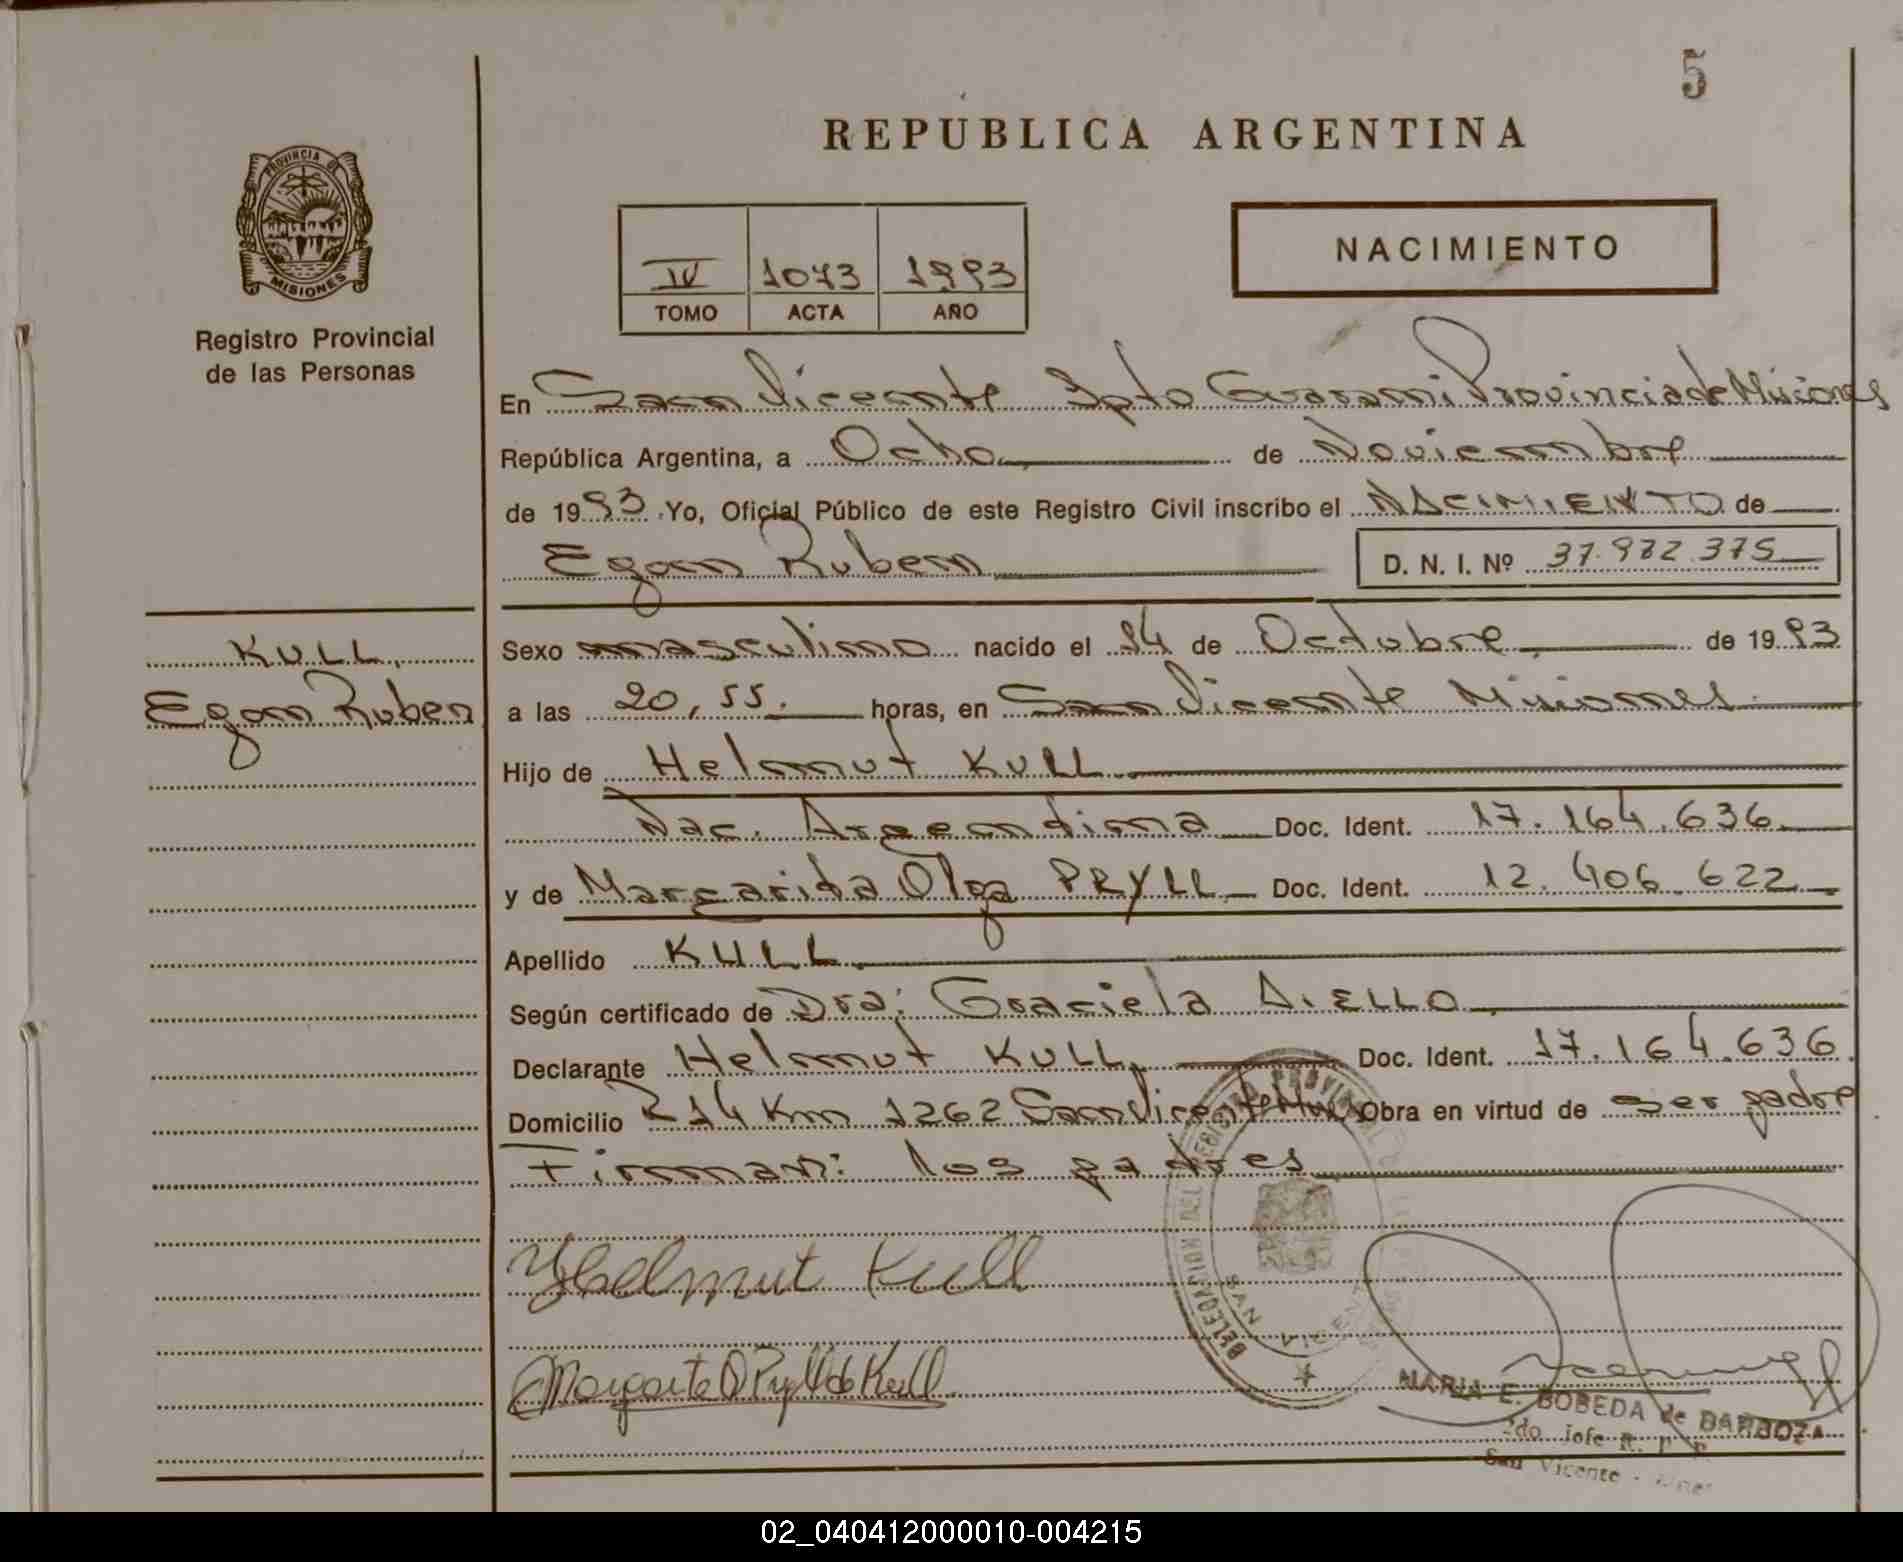 5
REPUBLICA ARGENTINA
PROVINCIA DE
MISIONES
Registro Provincial
de las Personas
IV 1073 1993
TOMO ACTA AÑO
NACIMIENTO
En San Vicente Dpto Guarani Provincia de Misiones
República Argentina, a Ocho de Noviembre
de 1993 Yo, Oficial Público de este Registro Civil inscribo el NACIMIENTO de
Egon Ruben D. N. I. Nº 37.972.375
KULL,
Egon Ruben
Sexo masculino nacido el 14 de Octubre de 1993
a las 20,55. horas, en San Vicente Misiones.
Hijo de Helmut KULL
Nac. Argentina Doc. Ident. 17.164.636
y de Margarita Olga PRYLL Doc. Ident. 12.406.622
Apellido KULL
Según certificado de Dra: Graciela AIELLO
Declarante Helmut KULL Doc. Ident. 17.164.636
Domicilio R 14 Km 1262 San Vicente Obra en virtud de ser padre
Firman: los padres
Helmut Kull
Margarita O Pryll de Kull
DELEGACION DEL REGISTRO PROVINCIAL
SAN VICENTE
MARIA E. BOBEDA de BARBOZA
2do Jefe R. P. P.
San Vicente - Mnes
02_040412000010-004215